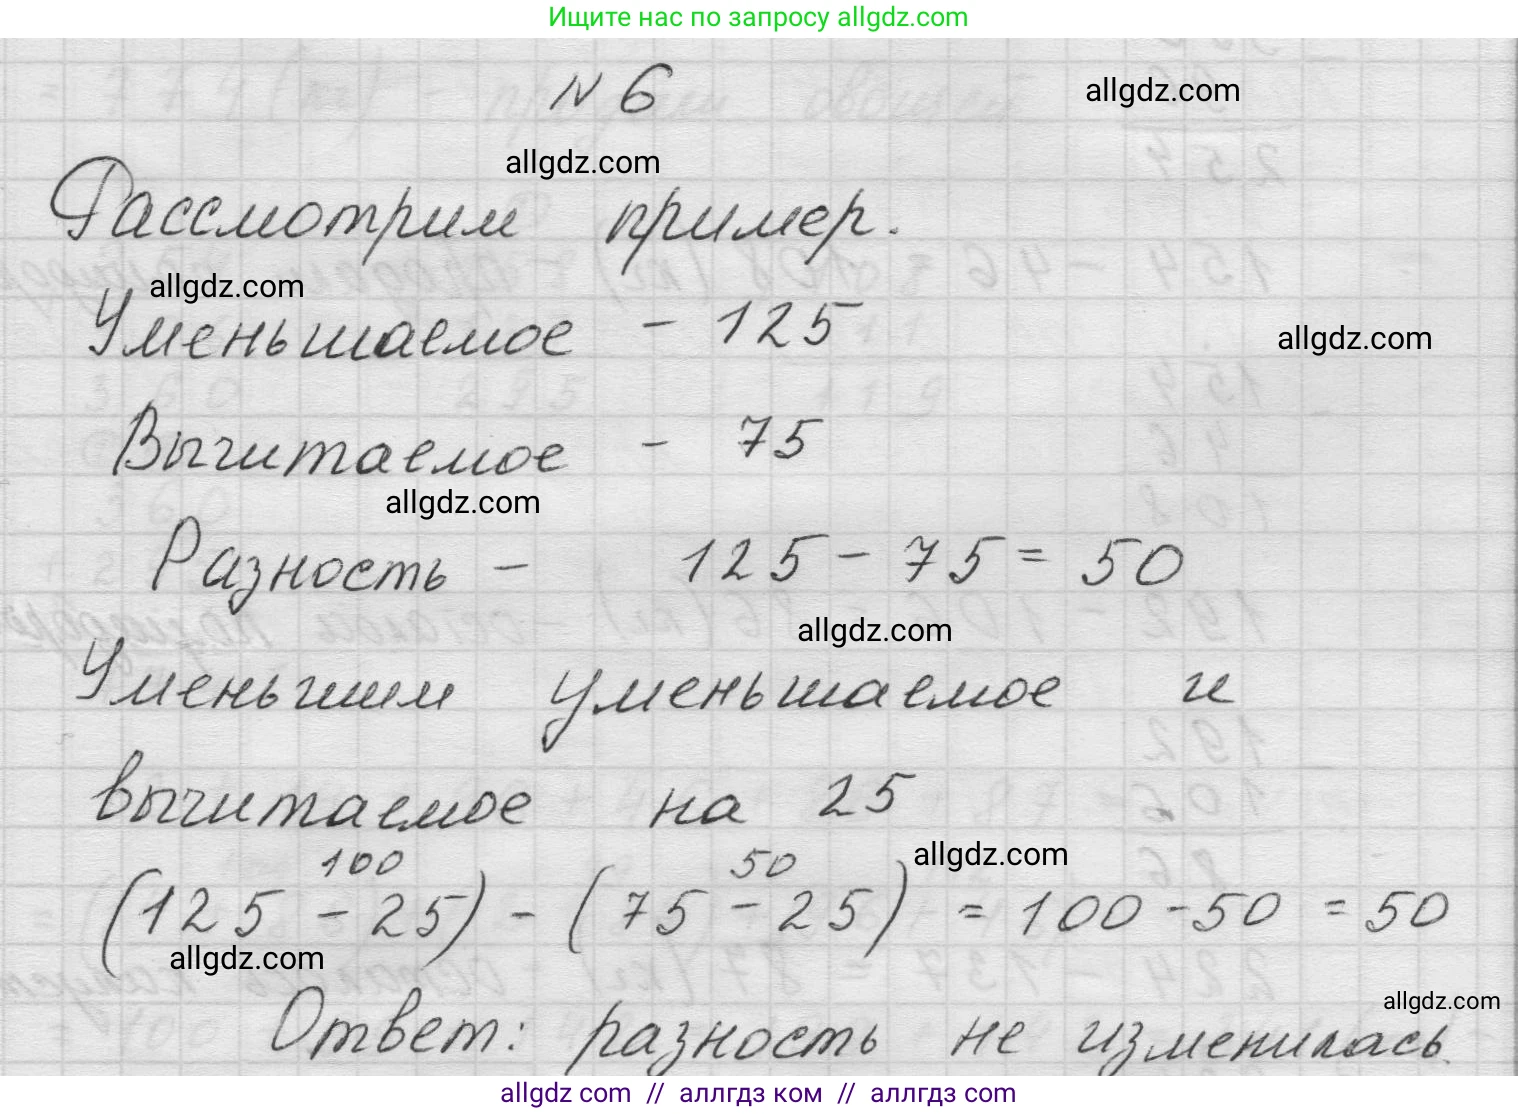 Ищите нас по запросу allgdz.com
№ 6
allgdz.com
allgdz.com
Рассмотрим пример.
allgdz.com
Уменьшаемое - 125
allgdz.com
Вычитаемое - 75
allgdz.com
Разность - 125 - 75 = 50
allgdz.com
Уменьшим уменьшаемое и
вычитаемое на 25
100 50
allgdz.com
(125 - 25) - (75 - 25) = 100 - 50 = 50
allgdz.com
allgdz.com
Ответ: разность не изменилась.
allgdz com // аллгдз ком // аллгдз com